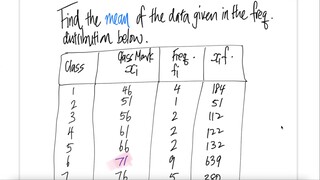 Find the mean of the data given in the freq.
distribution below.
Class Class Mark xi Freq. fi xif.
1 46 4 184
2 51 1 51
3 56 2 112
4 61 2 122
5 66 2 132
6 71 9 639
7 76 5 380